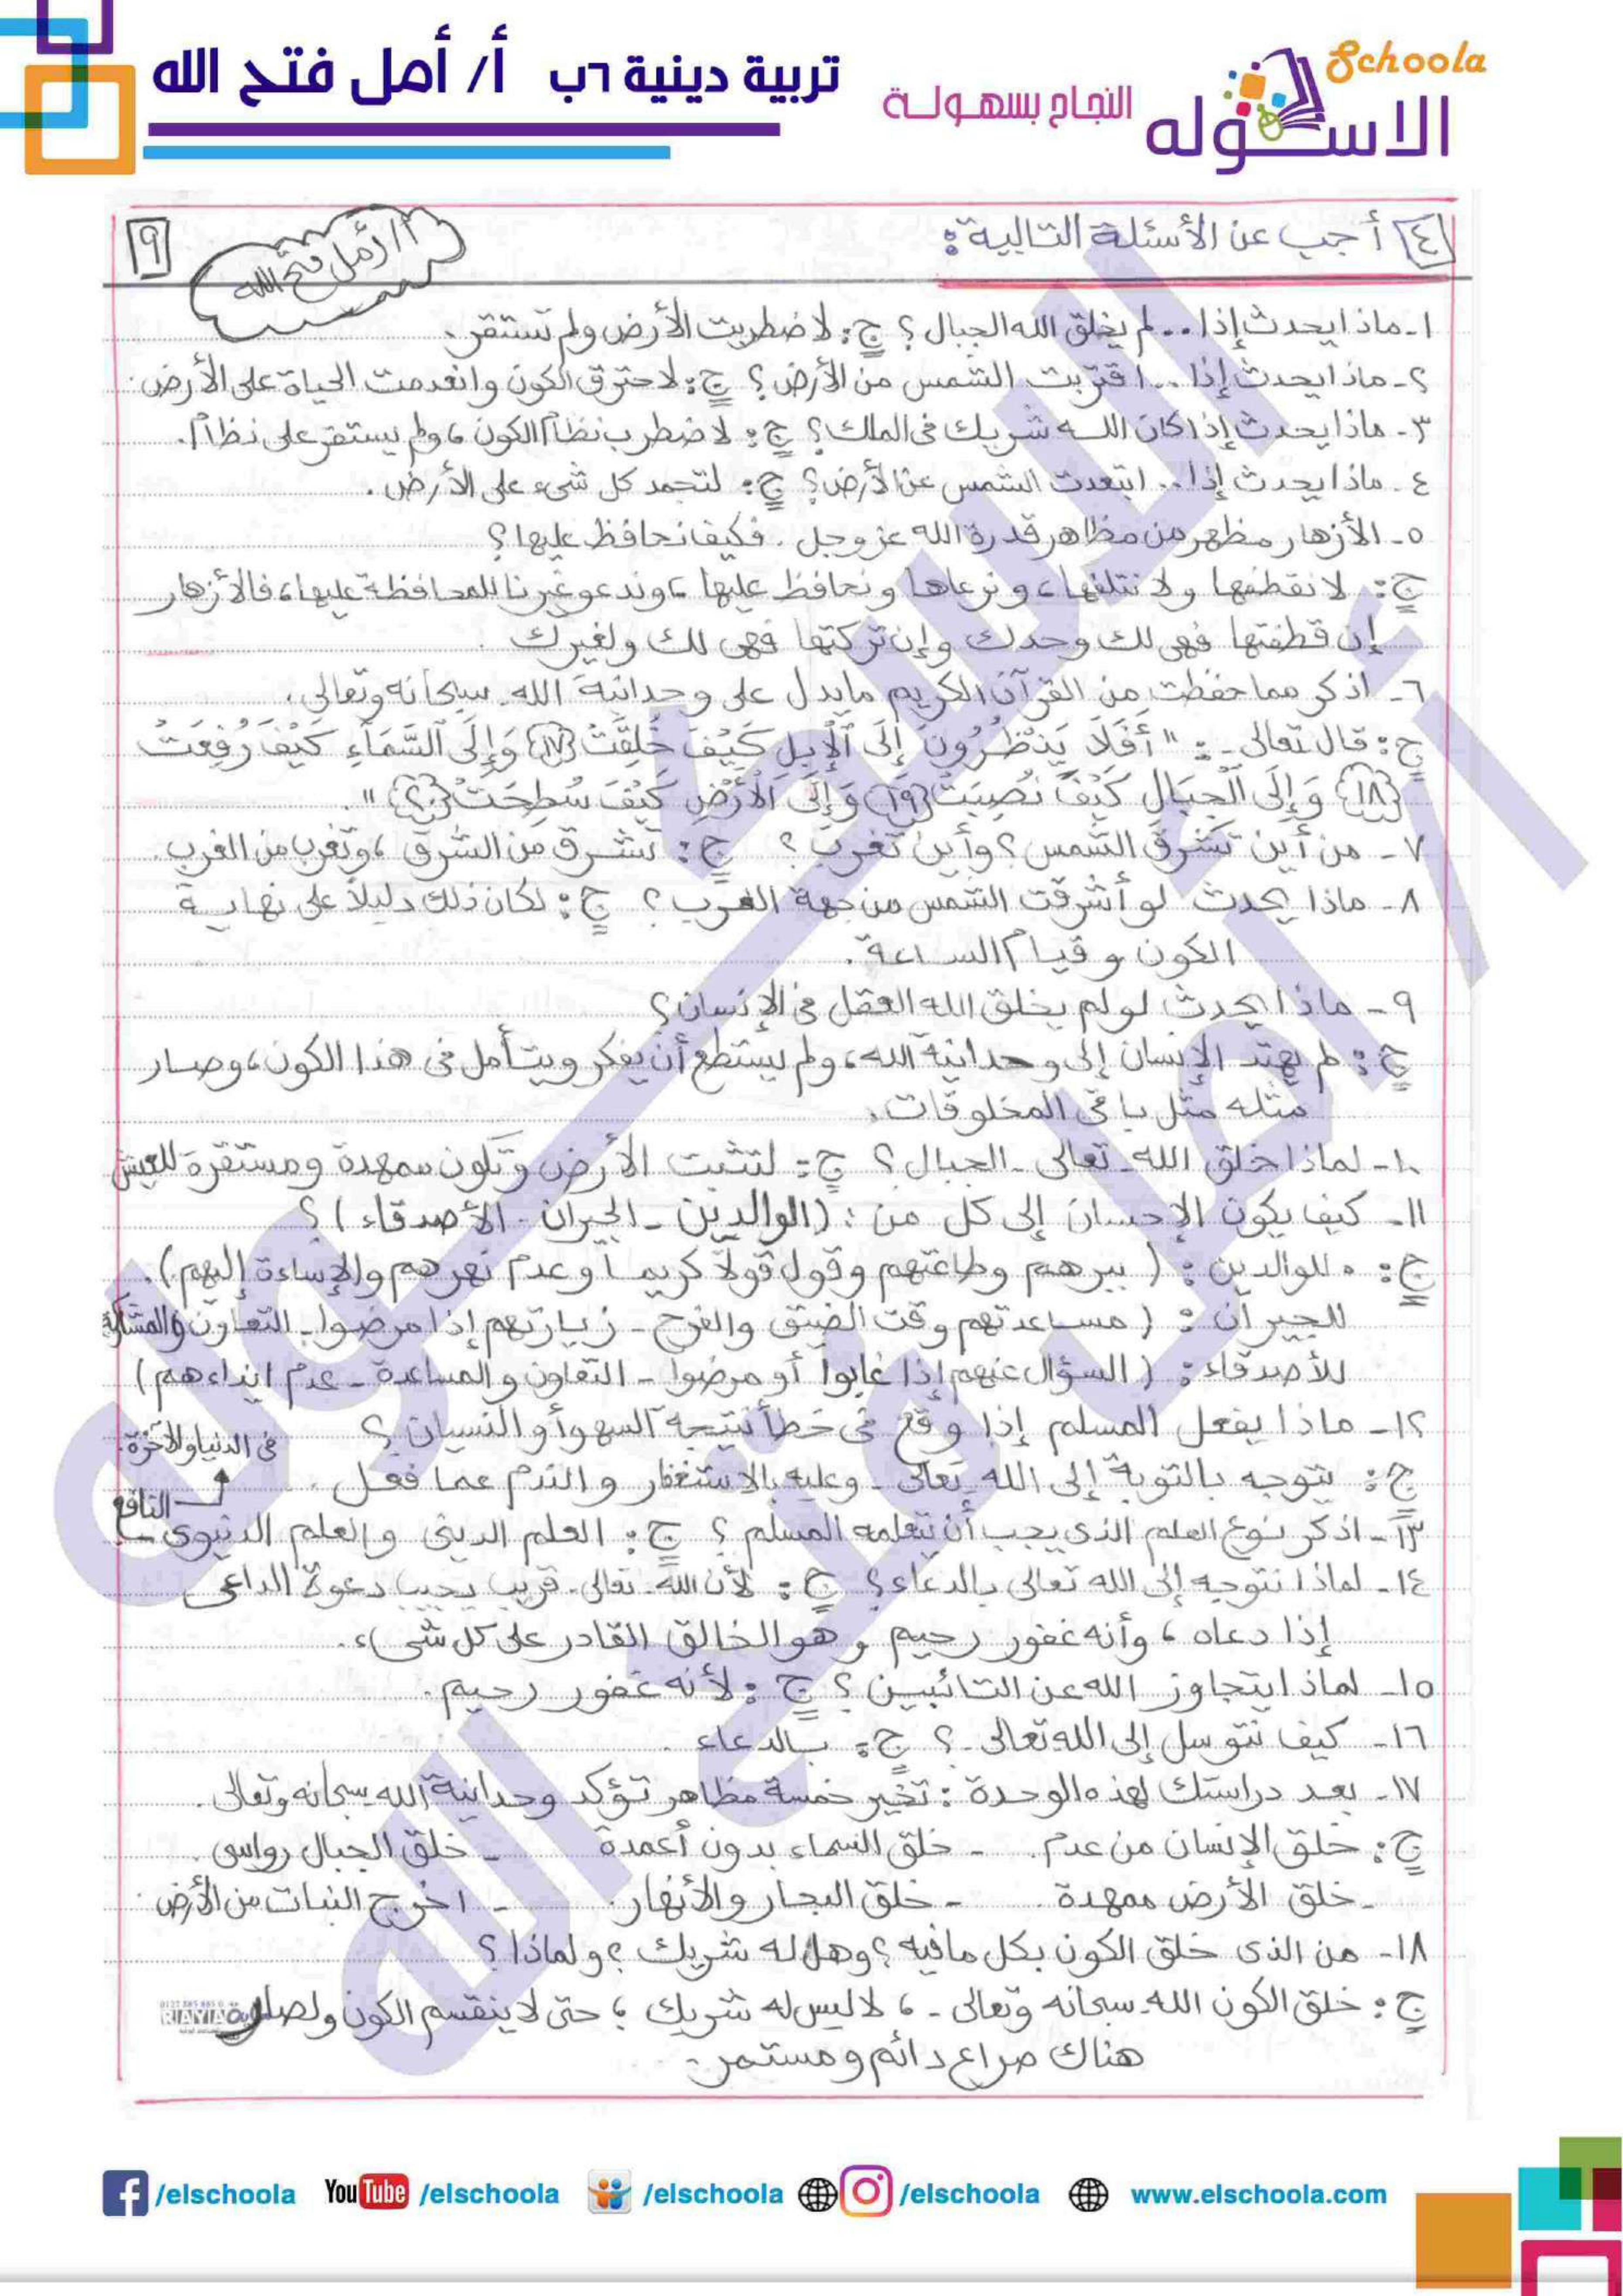 تربية دينية ٦ب أ/ أمل فتح الله
النجاح بسهولة
Schoola
الاسكوله
٤ أجب عن الأسئلة التالية:
أ/ أمل فتح الله
٩
١- ماذا يحدث إذا... لم يخلق الله الجبال؟ ج: لاضطربت الأرض ولم تستقر.
٢- ماذا يحدث إذا... اقتربت الشمس من الأرض؟ ج: لاحترق الكون وانعدمت الحياة على الأرض.
٣- ماذا يحدث إذا كان لله شريك فى الملك؟ ج: لاضطرب نظام الكون، ولم يستقر على نظام.
٤- ماذا يحدث إذا... ابتعدت الشمس عن الأرض؟ ج: لتجمد كل شىء على الأرض.
٥- الأزهار مظهر من مظاهر قدرة الله عز وجل. فكيف نحافظ عليها؟
ج: لا نقطفها ولا نتلفها، ونرعاها ونحافظ عليها، وندعو غيرنا للمحافظة عليها، فالأزهار
إن قطفتها فهى لك وحدك وإن تركتها فهى لك ولغيرك.
٦- اذكر مما حفظت من القرآن الكريم ما يدل على وحدانية الله سبحانه وتعالى.
ج: قال تعالى-: "أَفَلَا يَنْظُرُونَ إِلَى ٱلْإِبِلِ كَيْفَ خُلِقَتْ {١٧} وَإِلَى ٱلسَّمَآءِ كَيْفَ رُفِعَتْ
{١٨} وَإِلَى ٱلْجِبَالِ كَيْفَ نُصِبَتْ {١٩} وَإِلَى ٱلْأَرْضِ كَيْفَ سُطِحَتْ {٢٠}".
٧- من أين تشرق الشمس؟ وأين تغرب؟ ج: تشرق من الشرق، وتغرب من الغرب.
٨- ماذا يحدث لو أشرقت الشمس من جهة الغرب؟ ج: لكان ذلك دليلاً على نهاية
الكون وقيام الساعة.
٩- ماذا يحدث لو لم يخلق الله العقل فى الإنسان؟
ج: لم يهتد الإنسان إلى وحدانية الله، ولم يستطع أن يفكر ويتأمل فى هذا الكون، وصار
مثله مثل باقى المخلوقات.
١٠- لماذا خلق الله تعالى- الجبال؟ ج: لتثبت الأرض وتكون ممهدة ومستقرة للعيش
١١- كيف يكون الإحسان إلى كل من: (الوالدين - الجيران - الأصدقاء)؟
ج: للوالدين: (ببرهم وطاعتهم وقول قولا كريما وعدم نهرهم والإساءة إليهم).
للجيران: (مساعدتهم وقت الضيق والفرح - زيارتهم إذا مرضوا - التعاون والمشاركة
للأصدقاء: (السؤال عنهم إذا غابوا أو مرضوا - التعاون والمساعدة - عدم ايذاءهم)
١٢- ماذا يفعل المسلم إذا وقع فى خطأ نتيجة السهو أو النسيان؟
ج: يتوجه بالتوبة إلى الله تعالى- وعليه بالاستغفار والندم عما فعل.
١٣- اذكر نوع العلم الذى يجب أن يتعلمه المسلم؟ ج: العلم الدينى والعلم الدنيوى
النافع
فى الدنيا والآخرة.
١٤- لماذا نتوجه إلى الله تعالى بالدعاء؟ ج: لأن الله تعالى- قريب يجيب دعوة الداعى
إذا دعاه، وأنه غفور رحيم وهو الخالق القادر على كل شىء.
١٥- لماذا يتجاوز الله عن التائبين؟ ج: لأنه غفور رحيم.
١٦- كيف نتوسل إلى الله تعالى-؟ ج: بالدعاء.
١٧- بعد دراستك لهذه الوحدة: تخير خمسة مظاهر تؤكد وحدانية الله سبحانه وتعالى.
ج: خلق الإنسان من عدم. - خلق السماء بدون أعمدة - خلق الجبال رواسى.
- خلق الأرض ممهدة. - خلق البحار والأنهار. - اخرج النبات من الأرض.
١٨- من الذى خلق الكون بكل ما فيه؟ وهل له شريك؟ ولماذا؟
ج: خلق الكون الله سبحانه وتعالى-، لا ليس له شريك؛ حتى لا ينقسم الكون ولصار
هناك صراع دائم ومستمر.
/elschoola YouTube /elschoola /elschoola /elschoola www.elschoola.com